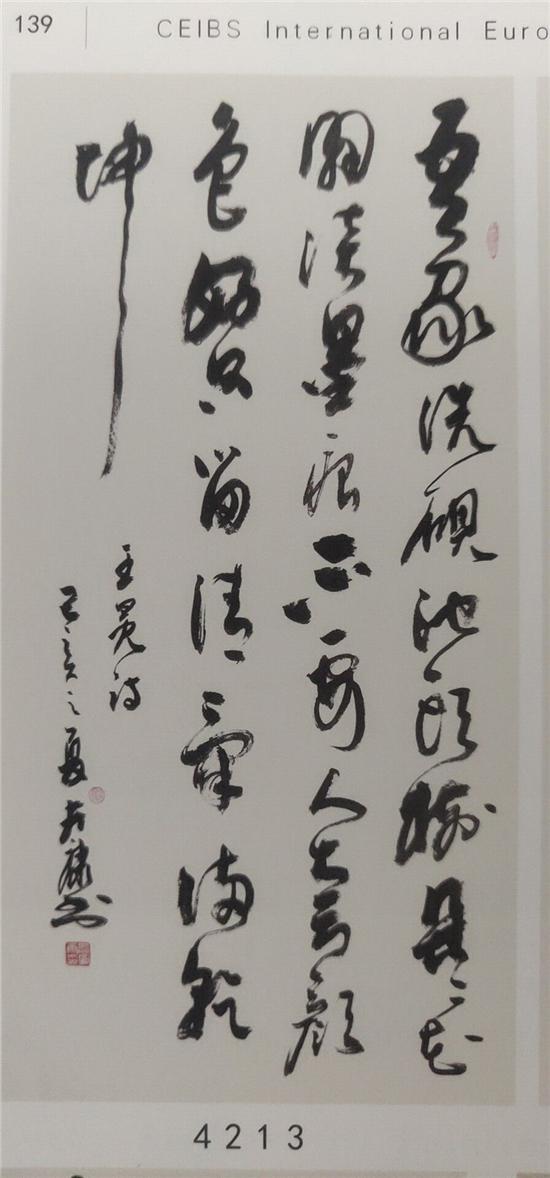 139 CEIBS International Euro
吾家洗硯池頭樹花
開淡墨痕不要人夸顏
色好只留清氣滿乾
坤
王冕詩
己亥之夏書
4213